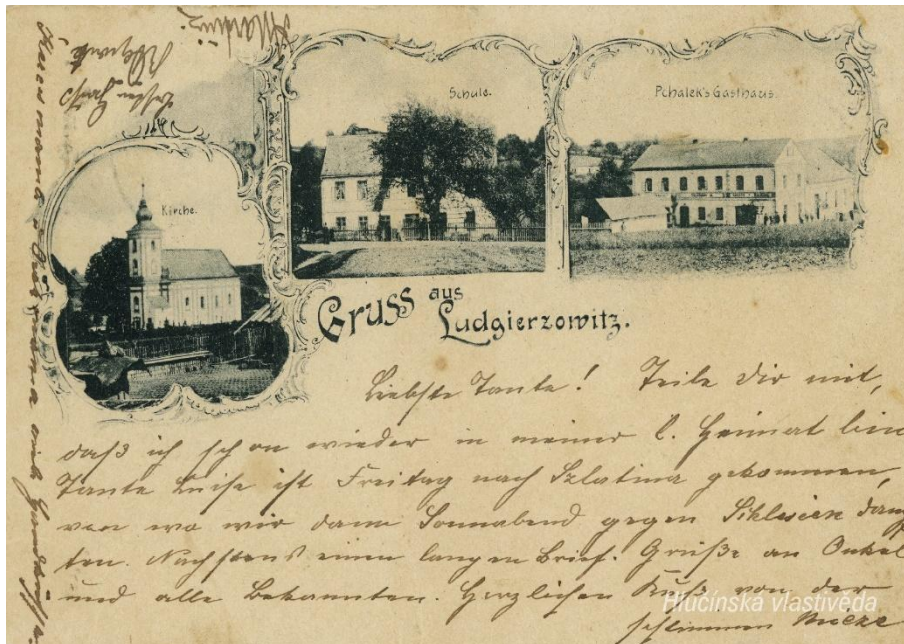 Schule.
Pchalek's Gasthaus.
Kirche.
Gruss aus
Ludgierzowitz.
Liebste Tante! Teile dir mit,
daß ich schon wieder in meiner l. Heimat bin
Tante Luise ist Freitag nach Szlatina gekommen,
von wo wir dann Sonnabend gegen
ten. Nächstens einen langen Brief. Grüße an Onkel
und alle Bekannten. Herzlichen Kuß von der
schlimmen
Hlučínská vlastivěda